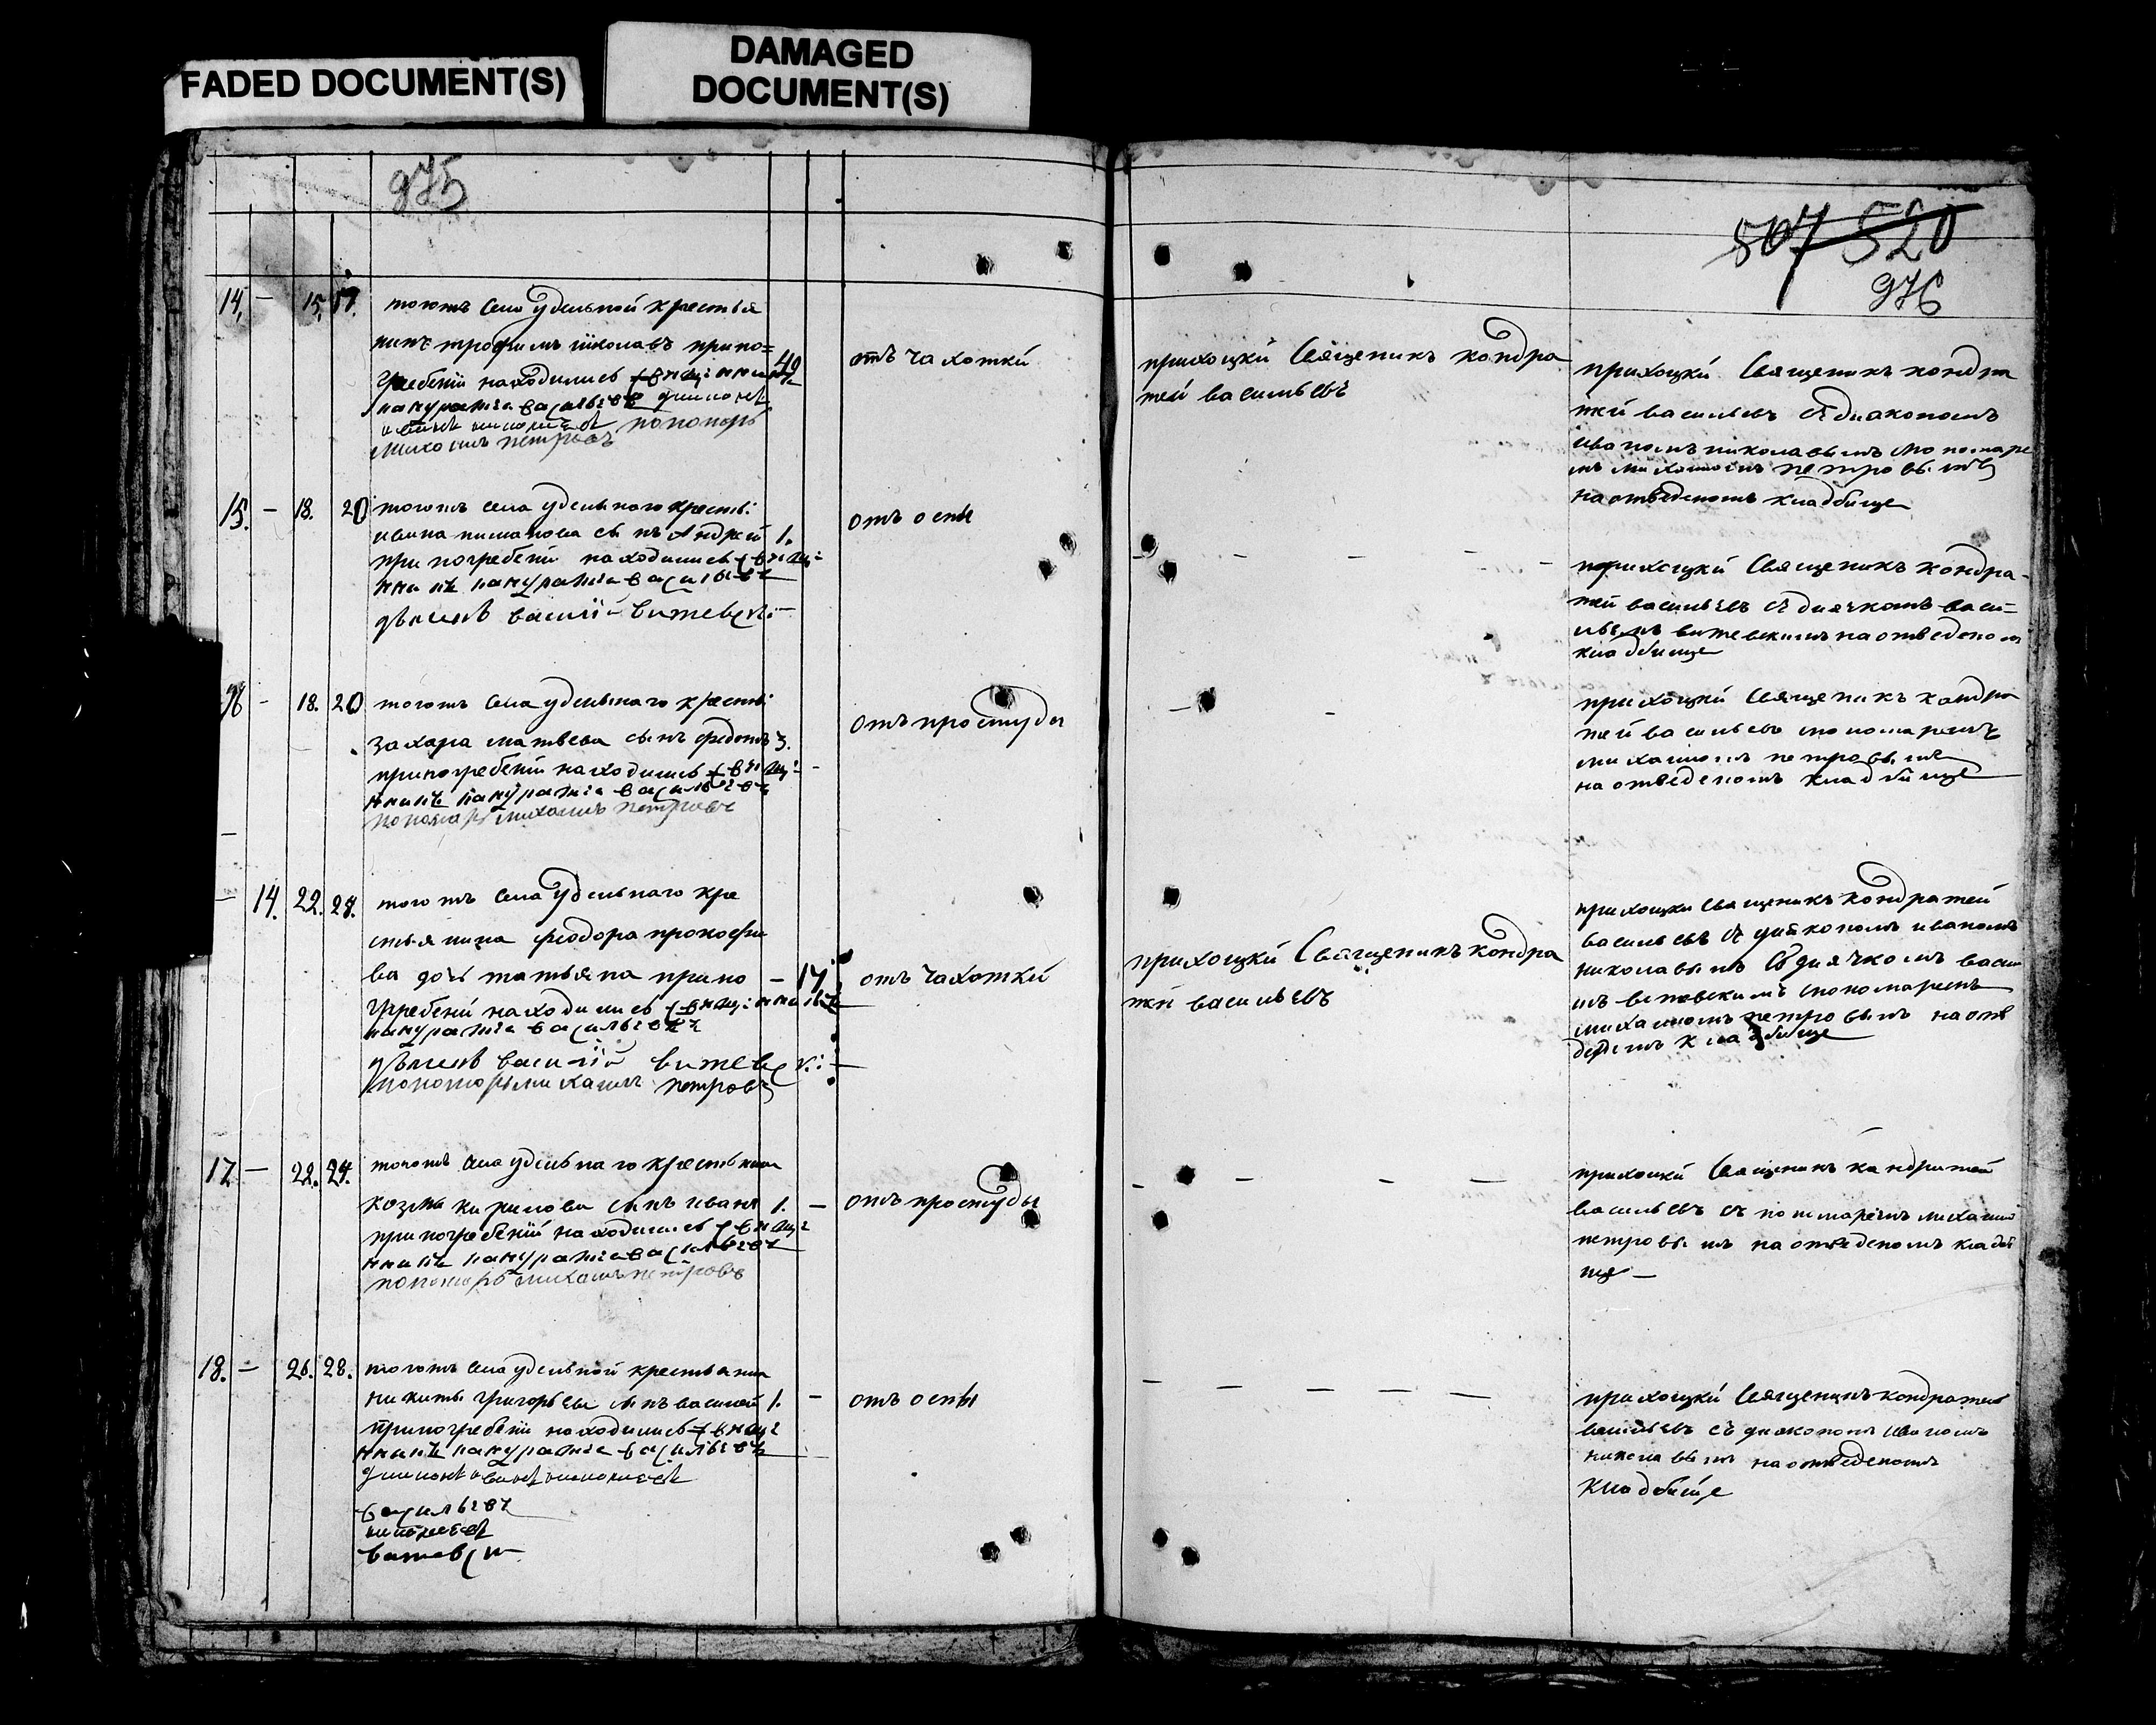 FADED DOCUMENT(S)
DAMAGED
DOCUMENT(S)
975
507 520
976
14. - 15. 17. тогожъ села удельной крестья
нинъ трофимъ николавъ припо=
гребенiи находились священникъ 49
кандратей васильевъ дияконъ
иванъ николаевъ пономарь
михаилъ петровъ
отъ чахотки
прихоцкй Священикъ кондра
тей васильевъ
прихоцкй Священикъ кондра
тей васильевъ съ диакономъ
иваномъ николавымъ и пономаре
мъ михаиломъ петровымъ
на отведеномъ кладбище
15. - 18. 20 тогожъ села удельнаго кресть:
сынъ Андрей 1.
при погребенiи находились священ
никъ кандратей васильевъ
дьячекъ василiй витевск:
отъ оспы
прихоцкй Священикъ кондра-
тей васильевъ съ дьячкомъ васи-
льемъ витевскимъ на отведеномъ
кладбище
- 18. 20 тогожъ села удельнаго кресть:
захара матвева сынъ федотъ 3.
при погребенiи находились священ
никъ кандратей васильевъ
пономарь михаилъ петровъ
отъ простуды
прихоцкй Священикъ кондра
тей васильевъ с пономаремъ
михаиломъ петровымъ
на отведеномъ кладбище
- 14. 22. 24. тогожъ села удельнаго кре
стьянина феодора прокофи
ва дочь татьяна припо - 14
гребенй находились священникъ
кандратей васильевъ
дьячекъ василiй витевск:
пономарь михаилъ петровъ
отъ чахоткй
прихоцкй Священикъ кондра
тей васильевъ
прихоцки Священикъ кондратей
васильевъ съ дияконом иваномъ
николавымъ съ дячкомъ васи
витевскимъ с пономаремъ
михаиломъ петровымъ на отве
деномъ кладбище
17 - 22. 24. тогожъ села удельнаго крестьянина
козмы кирилова сынъ иванъ 1. -
при погребенiй находились священ
никъ кандратей васильевъ
пономарь михаилъ петровъ
отъ простуды
прихоцкй Священикъ кандратей
васильевъ съ пономаремъ михаило
петровымъ на отведеномъ кладби
ще -
18. - 26. 28. тогожъ села удельной крестьянина
никиты григорьева сынъ василей 1. -
при погребенiи находились священ
никъ кандратей васильевъ
дияконъ иванъ николаевъ
васильевъ
николаевъ
витевск
отъ оспы
прихоцкй Священикъ кондратей
васильевъ съ диакономъ иваномъ
николавымъ на отведеномъ
кладбище